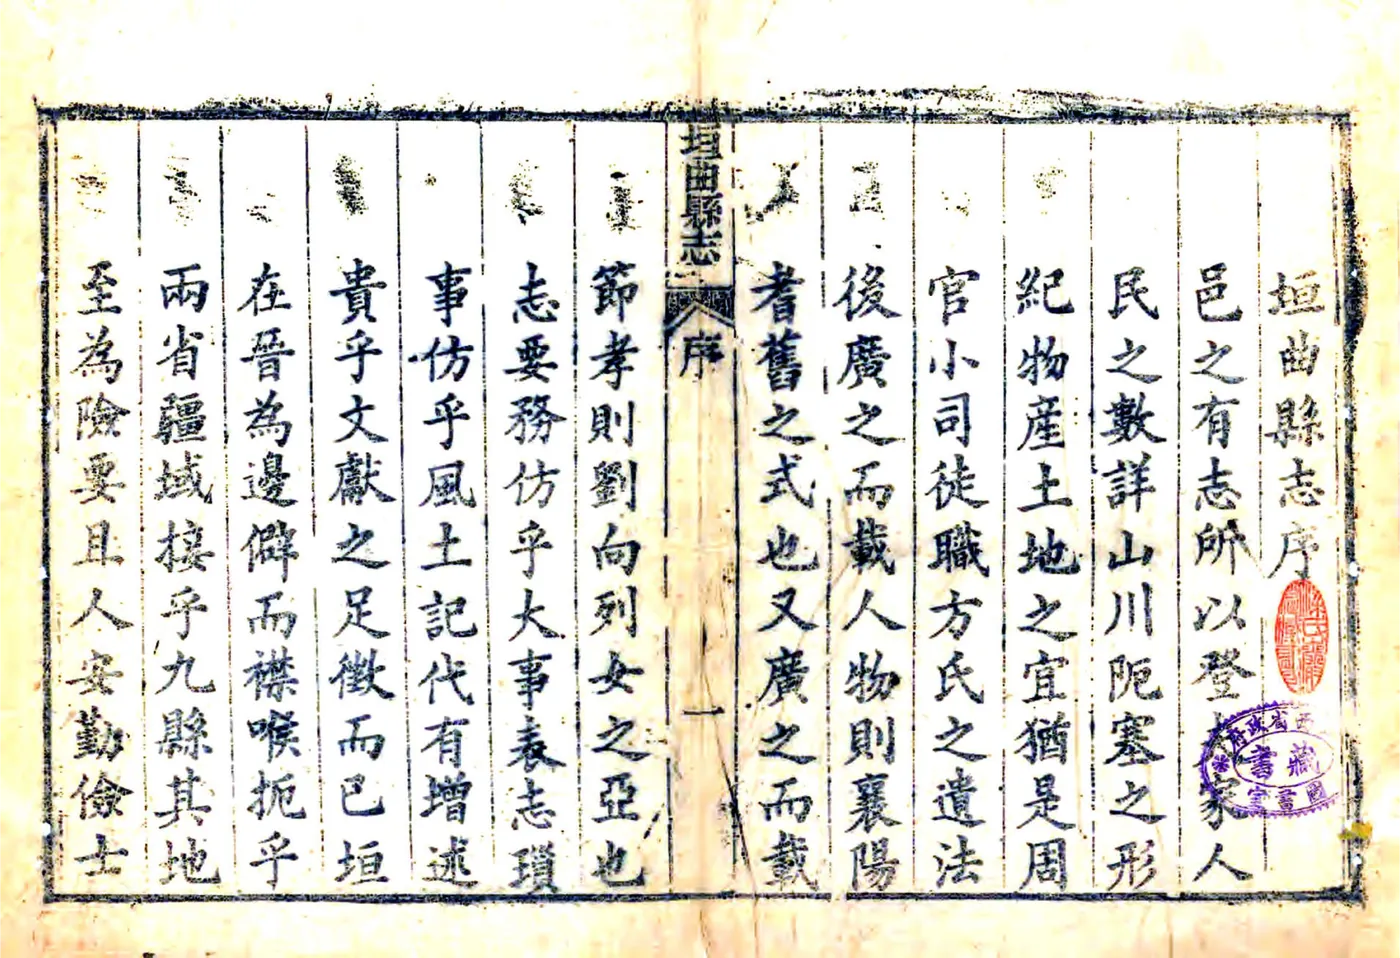 垣曲縣志序
邑之有志所以登夫家人
民之數詳山川阨塞之形
紀物產土地之宜猶是周
官小司徒職方氏之遺法
後廣之而載人物則襄陽
耆舊之式也又廣之而載
垣曲縣志
序
一
節孝則劉向列女之亞也
志要務仿乎大事表志瑣
事仿乎風土記代有增述
貴乎文獻之足徵而已垣
在晉為邊僻而襟喉扼乎
兩省疆域接乎九縣其地
至為險要且人安勤儉士
西省政府
藏書
圖書室